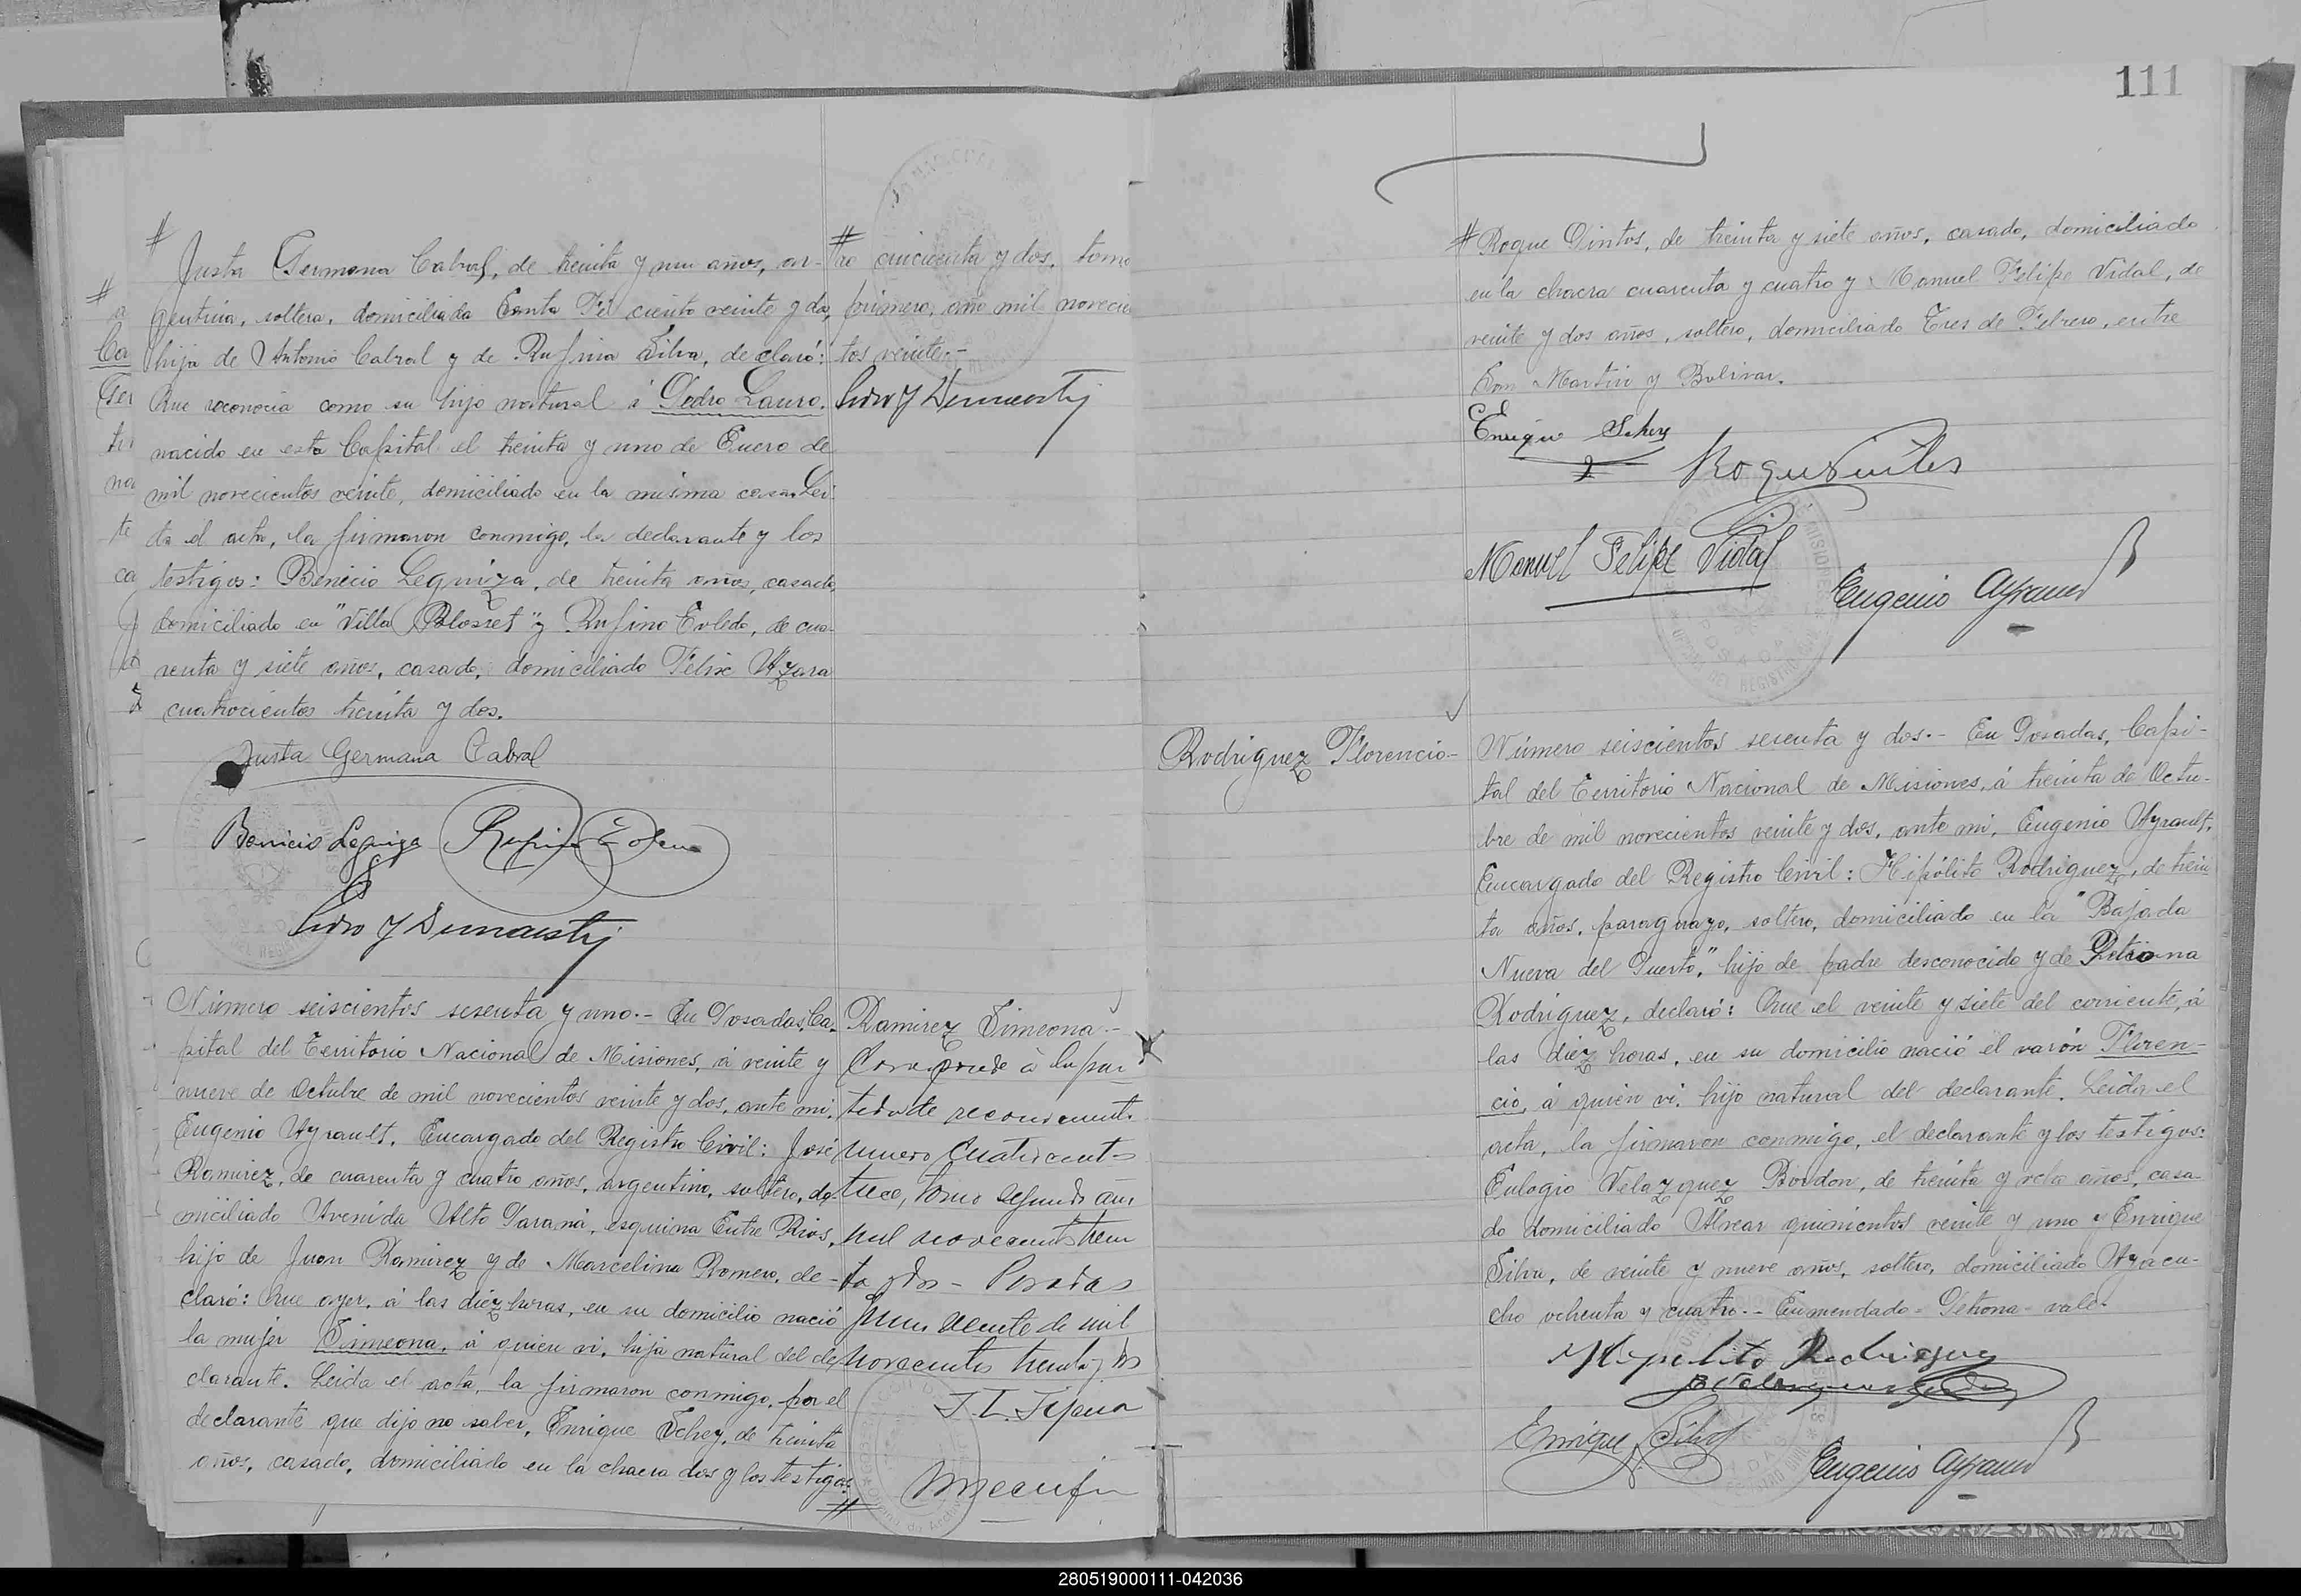 111
# Justa Germana Cabral, de treinta y un años, ar-
gentina, soltera, domiciliada Santa Fé ciento veinte y dos,
hija de Antonio Cabral y de Rufina Silva, declaró:
Que reconocia como su hijo natural á Pedro Lauro,
nacido en esta Capital el treinta y uno de Enero de
mil novecientos veinte, domiciliado en la misma casa. Lei-
da el acta, la firmaron conmigo, la declarante y los
testigos: Benicio Leguiza, de treinta años, casado,
domiciliado en "Villa Blosset" y Rufino Toledo, de cua-
renta y siete años, casado, domiciliado Felix Azara
cuatrocientos treinta y dos.
Justa Germana Cabral
Benicio Leguiza
# tro cincuenta y dos, tomo
primero, año mil novecien
tos veinte.-
Número seiscientos sesenta y uno.- En Posadas, Ca-
pital del Territorio Nacional de Misiones, á veinte y
nueve de Octubre de mil novecientos veinte y dos, ante mi,
Eugenio Ayrault, Encargado del Registro Civil: José
Ramirez, de cuarenta y cuatro años, argentino, soltero, do-
miciliado Avenida Alto Paraná, esquina Entre Rios,
hijo de Juan Ramirez y de Marcelina Romero, de-
claró: Que ayer, á las diez horas, en su domicilio nació
la mujer Simeona, á quien vi, hija natural del de-
clarante. Leida el acta, la firmaron conmigo, por el
declarante que dijo no saber, Enrique Schey, de treinta
años, casado, domiciliado en la chacra dos y los testigos:
#
Ramirez Simeona.-
Corresponde à la par-
tida de reconocimient.
numero cuatrocientos
trece, tomo segundo año
mil novecientos trein
ta y dos - Posadas
Junio veinte de mil
novecientos treinta y dos
# Roque Pintos, de treinta y siete años, casado, domiciliado
en la chacra cuarenta y cuatro y Manuel Felipe Vidal, de
veinte y dos años, soltero, domiciliado Tres de Febrero, entre
San Martin y Bolivar.
Enrique Schey
Roque Pintos
Manuel Felipe Vidal
Eugenio Ayrault
Rodriguez Florencio-
Número seiscientos sesenta y dos.- En Posadas, Capi-
tal del Territorio Nacional de Misiones, á treinta de Octu-
bre de mil novecientos veinte y dos, ante mi, Eugenio Ayrault,
Encargado del Registro Civil: Hipólito Rodriguez, de trein
ta años, paraguayo, soltero, domiciliado en la "Bajada
Nueva del Puerto," hijo de padre desconocido y de Petrona
Rodriguez, declaró: Que el veinte y siete del corriente, á
las diez horas, en su domicilio nació el varón Floren-
cio, á quien vi, hijo natural del declarante. Leida el
acta, la firmaron conmigo, el declarante y los testigos:
Eulogio Velazquez Bordon, de treinta y ocho años, casa
do domiciliado Alvear quinientos veinte y uno y Enrique
Silva, de veinte y nueve años, soltero, domiciliado Ayacu-
cho ochenta y cuatro.- Enmendado - Petrona - vale.
Hipolito Rodriguez
Enrique Silva
Eugenio Ayrault
280519000111-042036